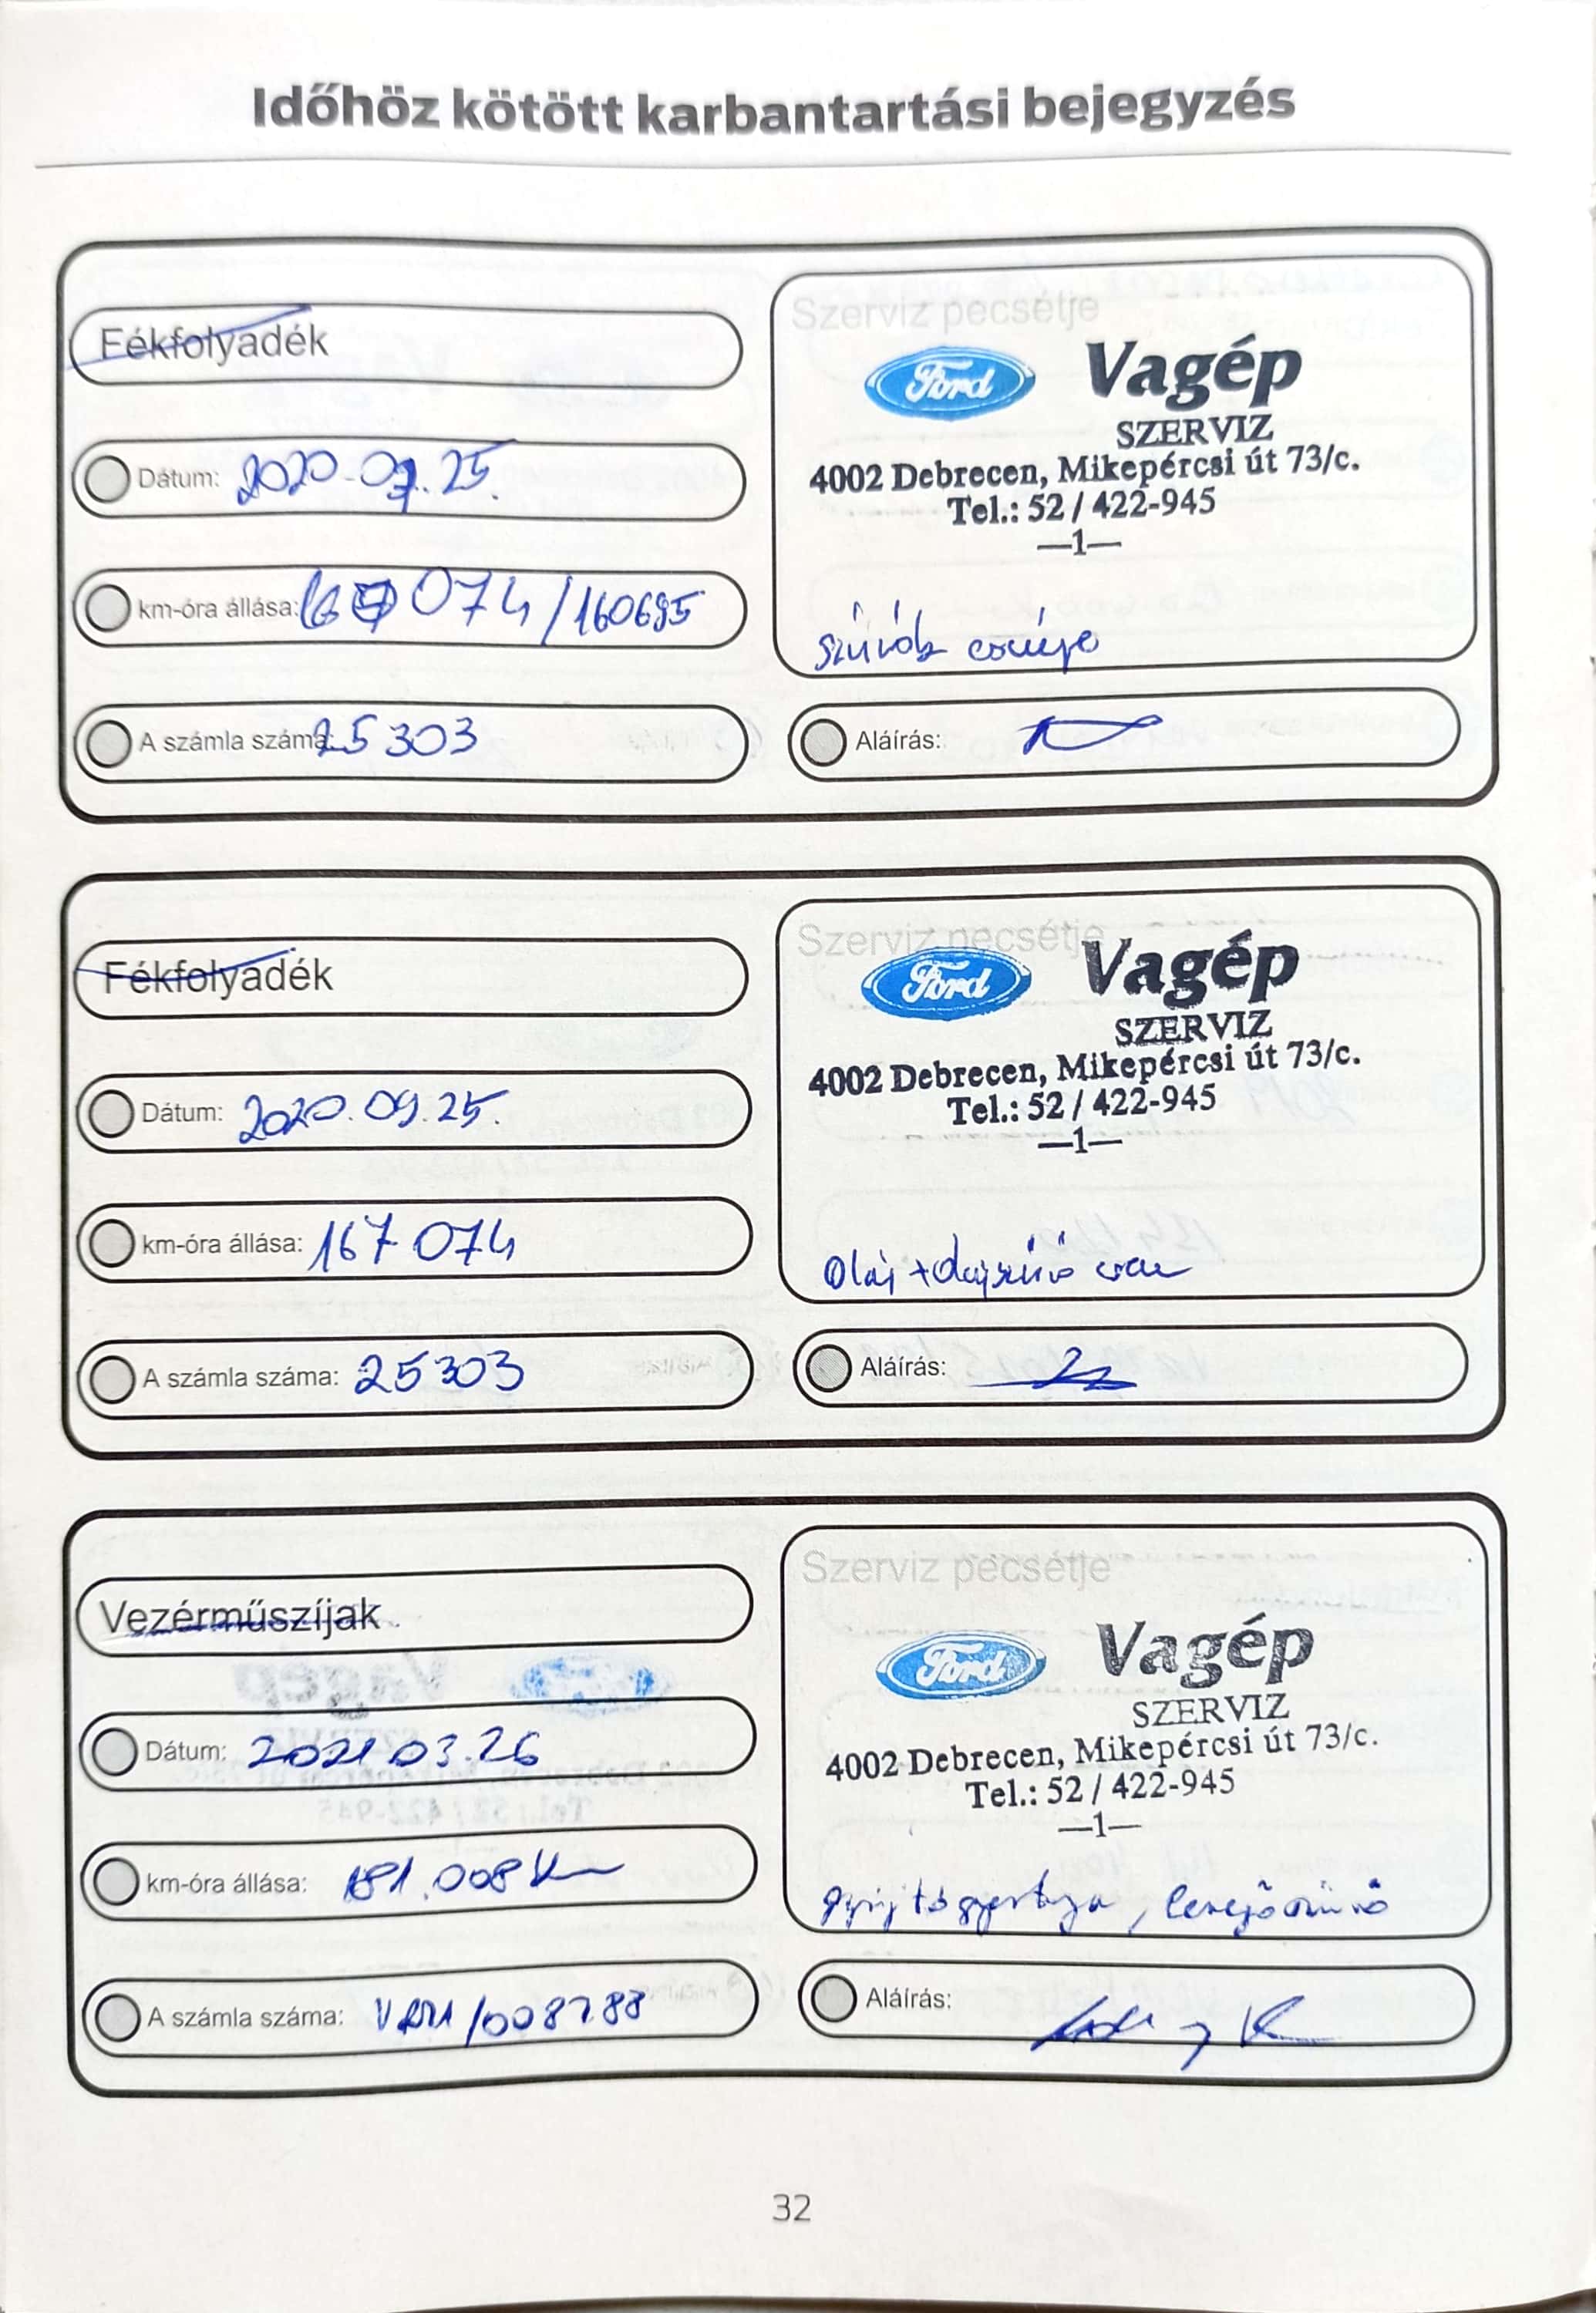 Időhöz kötött karbantartási bejegyzés
Fékfolyadék
Dátum: 2020.09.25.
km-óra állása: 074/160695
A számla száma: 25303
Szerviz pecsétje
Ford Vagép
SZERVIZ
4002 Debrecen, Mikepércsi út 73/c.
Tel.: 52 / 422-945
—1—
szűrők cseréje
Aláírás:
Fékfolyadék
Dátum: 2020.09.25.
km-óra állása: 167 074
A számla száma: 25303
Szerviz pecsétje
Ford Vagép
SZERVIZ
4002 Debrecen, Mikepércsi út 73/c.
Tel.: 52 / 422-945
—1—
Olaj + olajszűrő
Aláírás:
Vezérműszíjak
Dátum: 2021 03.26
km-óra állása: 181.008 km
A számla száma:
Szerviz pecsétje
Ford Vagép
SZERVIZ
4002 Debrecen, Mikepércsi út 73/c.
Tel.: 52 / 422-945
—1—
gyújtógyertya, levegőszűrő
Aláírás:
32